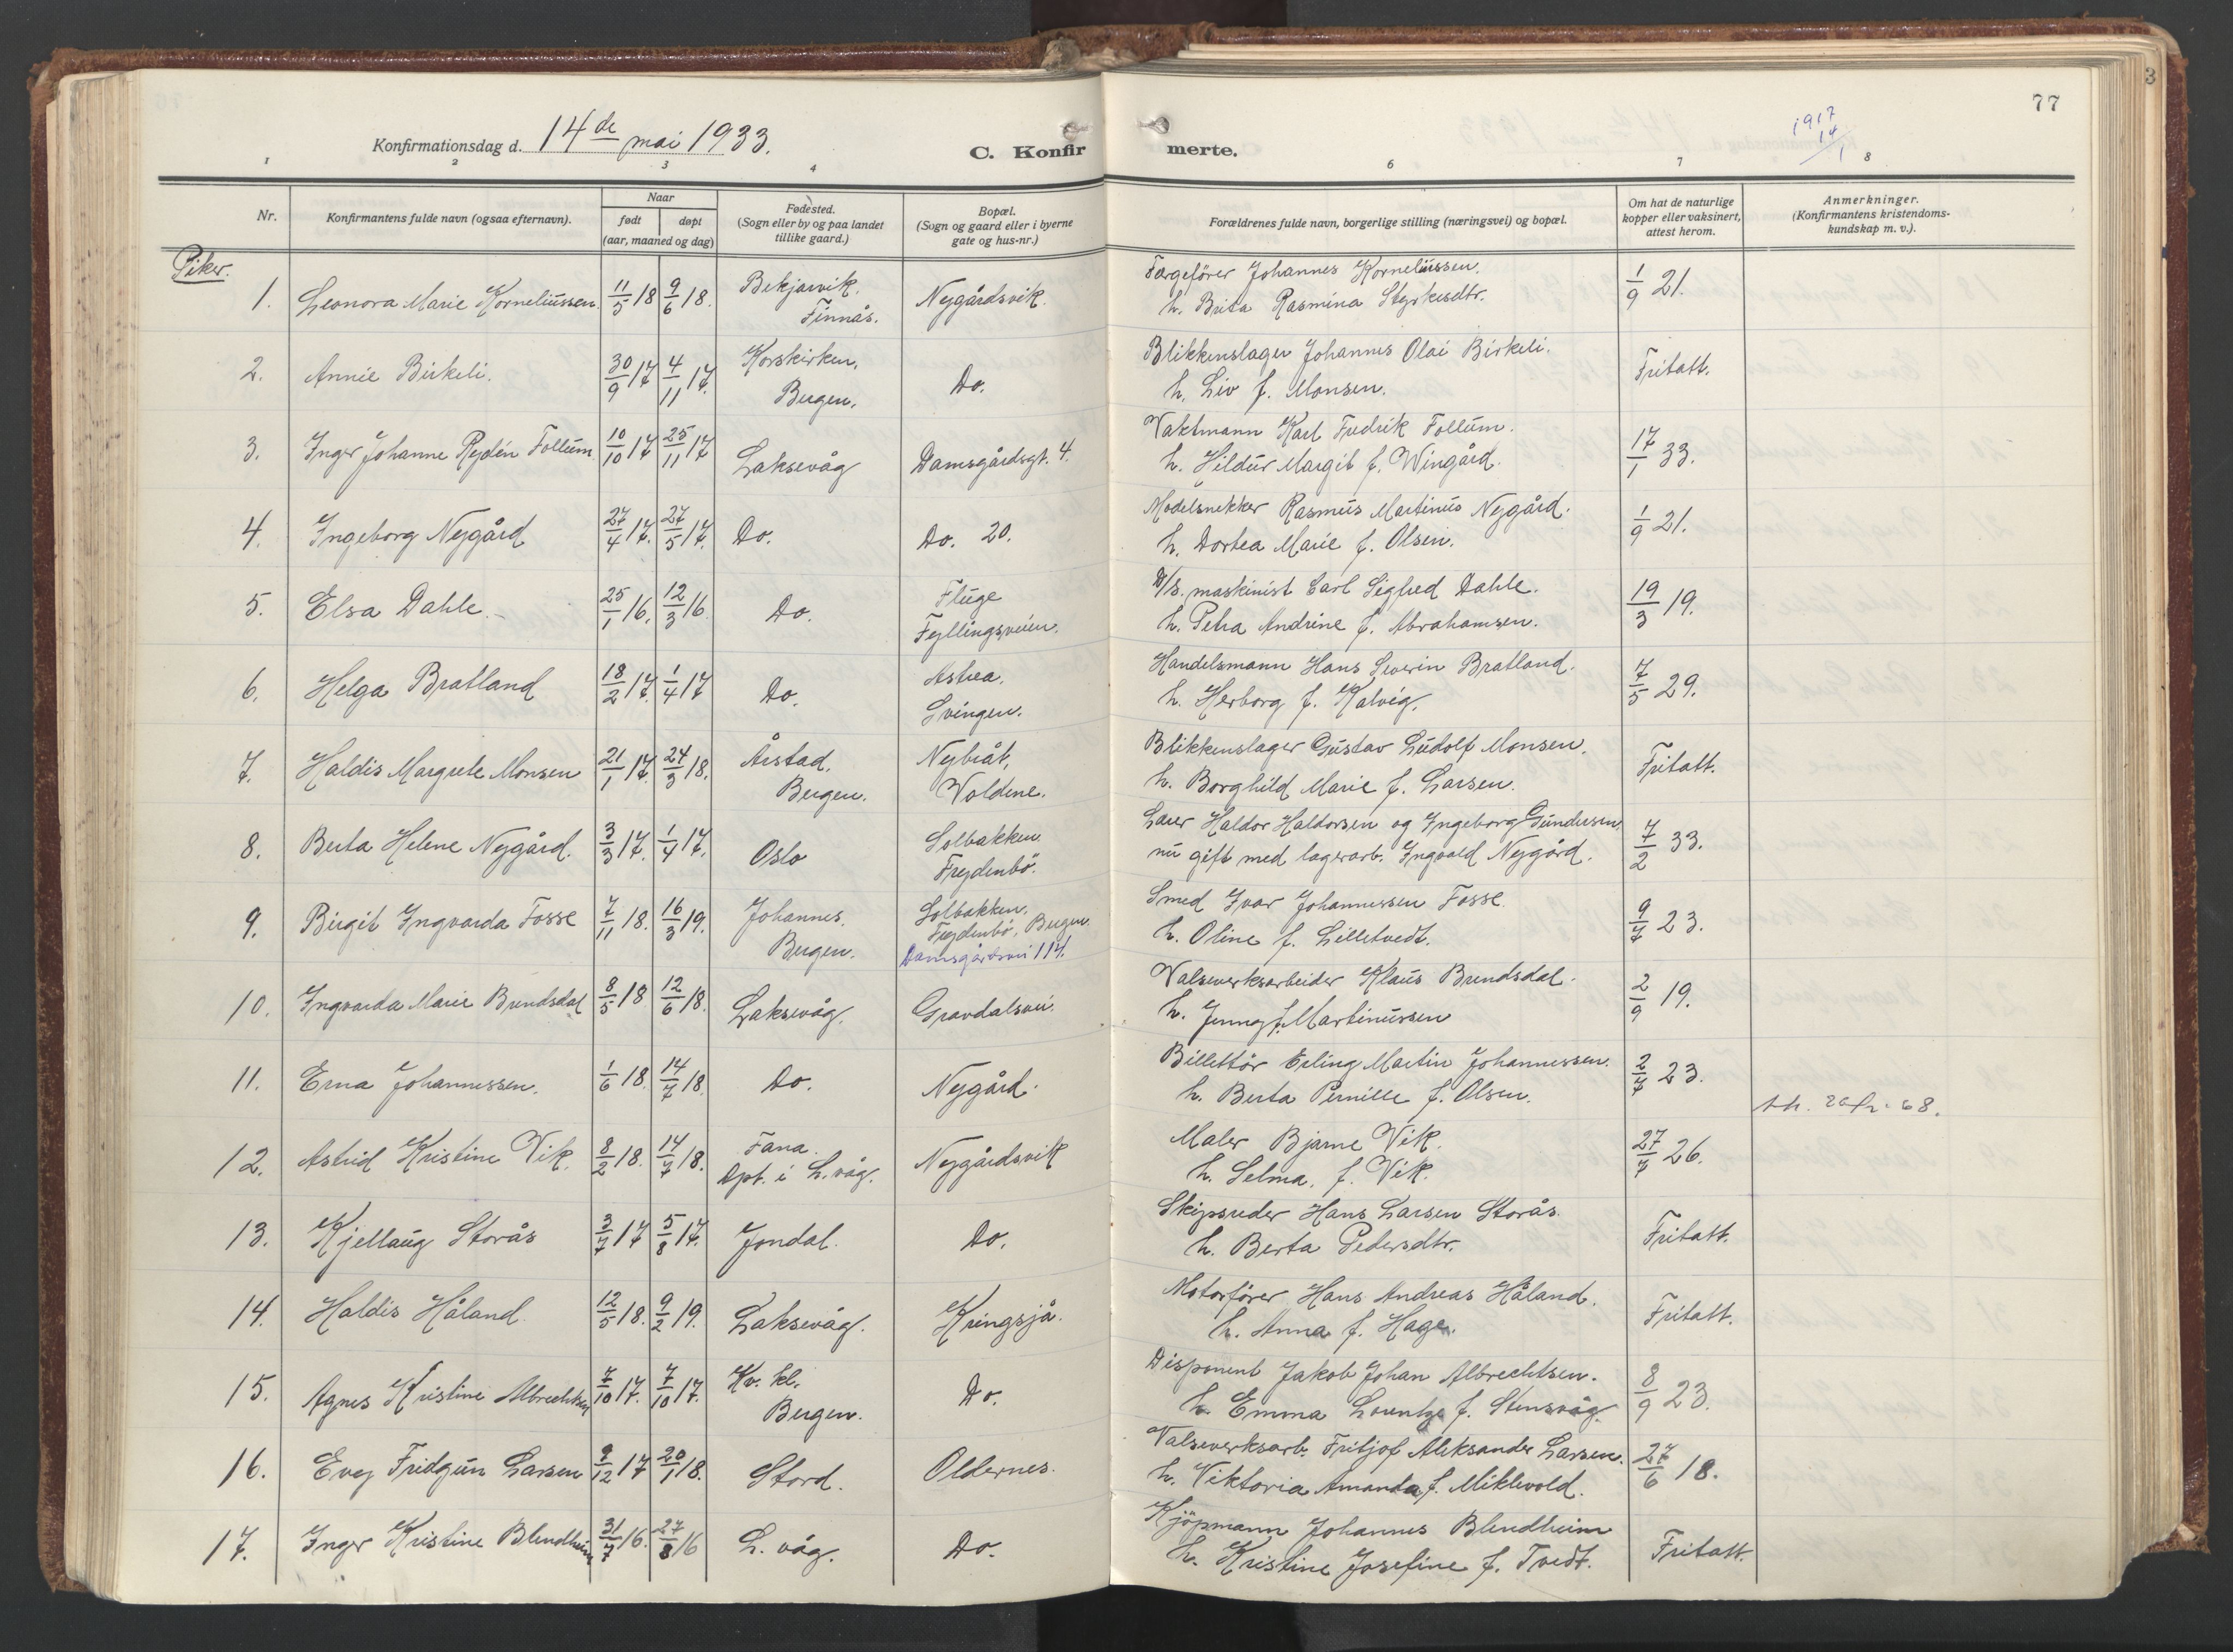 77
1917
14
1
Konfirmationsdag d. 14de mai 1933.
C. Konfirmerte.
1 2 3 4 6 7 8
Nr. Konfirmantens fulde navn (ogsaa efternavn). Naar født døpt (aar, maaned og dag) Fødested. (Sogn eller by og paa landet tillike gaard.) Bopæl. (Sogn og gaard eller i byerne gate og hus-nr.) Forældrenes fulde navn, borgerlige stilling (næringsvei) og bopæl. Om hat de naturlige kopper eller vaksinert, attest herom. Anmerkninger. (Konfirmantens kristendoms-kundskap m. v.).
Piker.
1. Leonora Marie Korneliussen 11/5 18 9/6 18. Bekjarvik. Finnås. Nygårdsvik. Færgefører Johannes Korneliussen. 1/9 21.
h. Brita Rasmina Styrkesdtr.
2. Annie Birkeli. 30/9 17 4/11 17. Korskirken, Bergen. Do. Blikkenslager Johannes Olai Birkeli. Fritatt.
h. Liv f. Monsen.
3. Inger Johanne Rydén Follum 10/10 17 25/11 17 Laksevåg Damsgårdsgt. 4. Vaktmann Karl Fredrik Follum. 17/1 33.
h. Hildur Margit f. Wingård.
4. Ingeborg Nygård 27/4 17. 27/5 17. Do. Do. 20. Modelsnekker Rasmus Martinus Nygård. 1/9 21.
h. Dortea Marie f. Olsen.
5. Elsa Dahle 25/1 16. 12/3 16 Do. Fluge Fyllingsveien. D/s. maskinist Carl Sigfred Dahle. 19/3 19.
h. Petra Andrine f. Abrahamsen.
6. Helga Bratland 18/2 17. 1/4 17 Do. Astrea. Svingen. Handelsmann Hans Severin Bratland. 7/5 29.
h. Herborg f. Kalvig.
7. Haldis Margrete Monsen 21/1 17. 24/3 18. Årstad, Bergen. Nybråt, Voldene. Blikkenslager Gustav Ludolf Monsen. Fritatt.
h. Borghild Marie f. Larsen.
8. Berta Helene Nygård. 3/3 17. 1/4 17. Oslo Solbakken Frydenbö. Lærer Haldor Haldorsen og Ingeborg Gundersen, 7/2 33.
nu gift med lagerarb. Ingvald Nygård.
9. Birgit Ingvarda Fosse 7/11 18. 16/3 19. Johannes, Bergen. Solbakken, Frydenbö, Bergen. Damsgårdsvei 114. Smed Ivar Johannessen Fosse. 9/7 23.
h. Oline f. Lilletvedt.
10. Ingvarda Marie Brundsdal 8/5 18 12/6 18. Laksevåg. Gravdalsvei. Valseverksarbeider Klaus Brundsdal. 2/9 19.
h. Jenny f. Martinussen
11. Erna Johannessen. 1/6 18. 14/7 18. Do. Nygård. Billettör Erling Martin Johannessen. 2/7 23.
h. Berta Pernille f. Olsen.
12. Astrid Kristine Vik. 8/2 18. 14/7 18. Fana. Dpt. i L.våg. Nygårdsvik Maler Bjarne Vik. 27/7 26.
h. Selma. f. Vik.
13. Kjellaug Storås 3/7 17 5/8 17. Jondal. Do. Skipsreder Hans Larsen Storås. Fritatt.
h. Berta Pedersdtr.
14. Haldis Håland. 12/5 18. 9/2 19. Laksevåg. Kringsjå. Motorförer Hans Andreas Håland. Fritatt.
h. Anna f. Hage.
15. Agnes Kristine Albrechtsen 7/10 17. 7/10 17. Kv. kl. Bergen. Do. Disponent Jakob Johan Albrechtsen. 8/9 23.
h. Emma Lorentze f. Stensvåg.
16. Evey Fridgun Larsen 9/12 17 20/1 18. Stord. Oldernes. Valseverksarb. Fritjof Aleksander Larsen. 27/6 18.
h. Viktoria Amanda f. Miklevold.
17. Inger Kristine Blendheim 31/7 16. 27/8 16 L. våg. Do. Kjöpmann Johannes Blendheim Fritatt.
h. Kristine Josefine f. Tvedt.